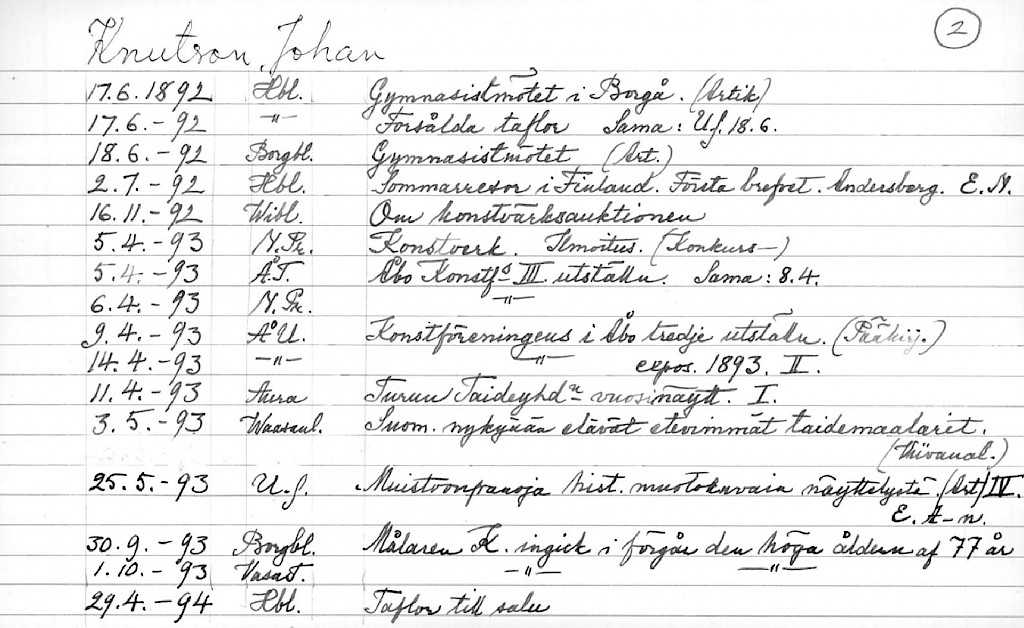 Knutson, Johan
2
17.6.1892 Hbl. Gymnasistmötet i Borgå. (Artik)
17.6.-92 -"- Försålda taflor Sama: Uf. 18.6.
18.6.-92 Borgbl. Gymnasistmötet (Art.)
2.7.-92 Hbl. Sommarresor i Finland. Första brefvet. Andersberg. E. N.
16.11.-92 Wibl. Om konstvärksauktionen
5.4.-93 N.Pr. Konstverk. Ilmoitus. (Konkurs-)
5.4.-93 Å.T. Åbo Konstf:s III utställn. Sama: 8.4.
6.4.-93 N.Pr. -"-
9.4.-93 Å.U. Konstföreningens i Åbo tredje utställn. (Pääkirj.)
14.4.-93 -"- -"- expos. 1893. II.
11.4.-93 Aura Turun Taideyhd:n vuosinäytt. I.
3.5.-93 Waasanl. Suom. nykyään elävät etevimmät taidemaalarit.
25.5.-93 U.s. Muistoonpanoja hist. muotokuvain näyttelystä. (Art) IV.
E. A-n.
30.9.-93 Borgbl. Målaren K. ingick i förgår den höga åldern af 77 år
1.10.-93 Vasat. -"- -"-
29.4.-94 Hbl. Taflor till salu